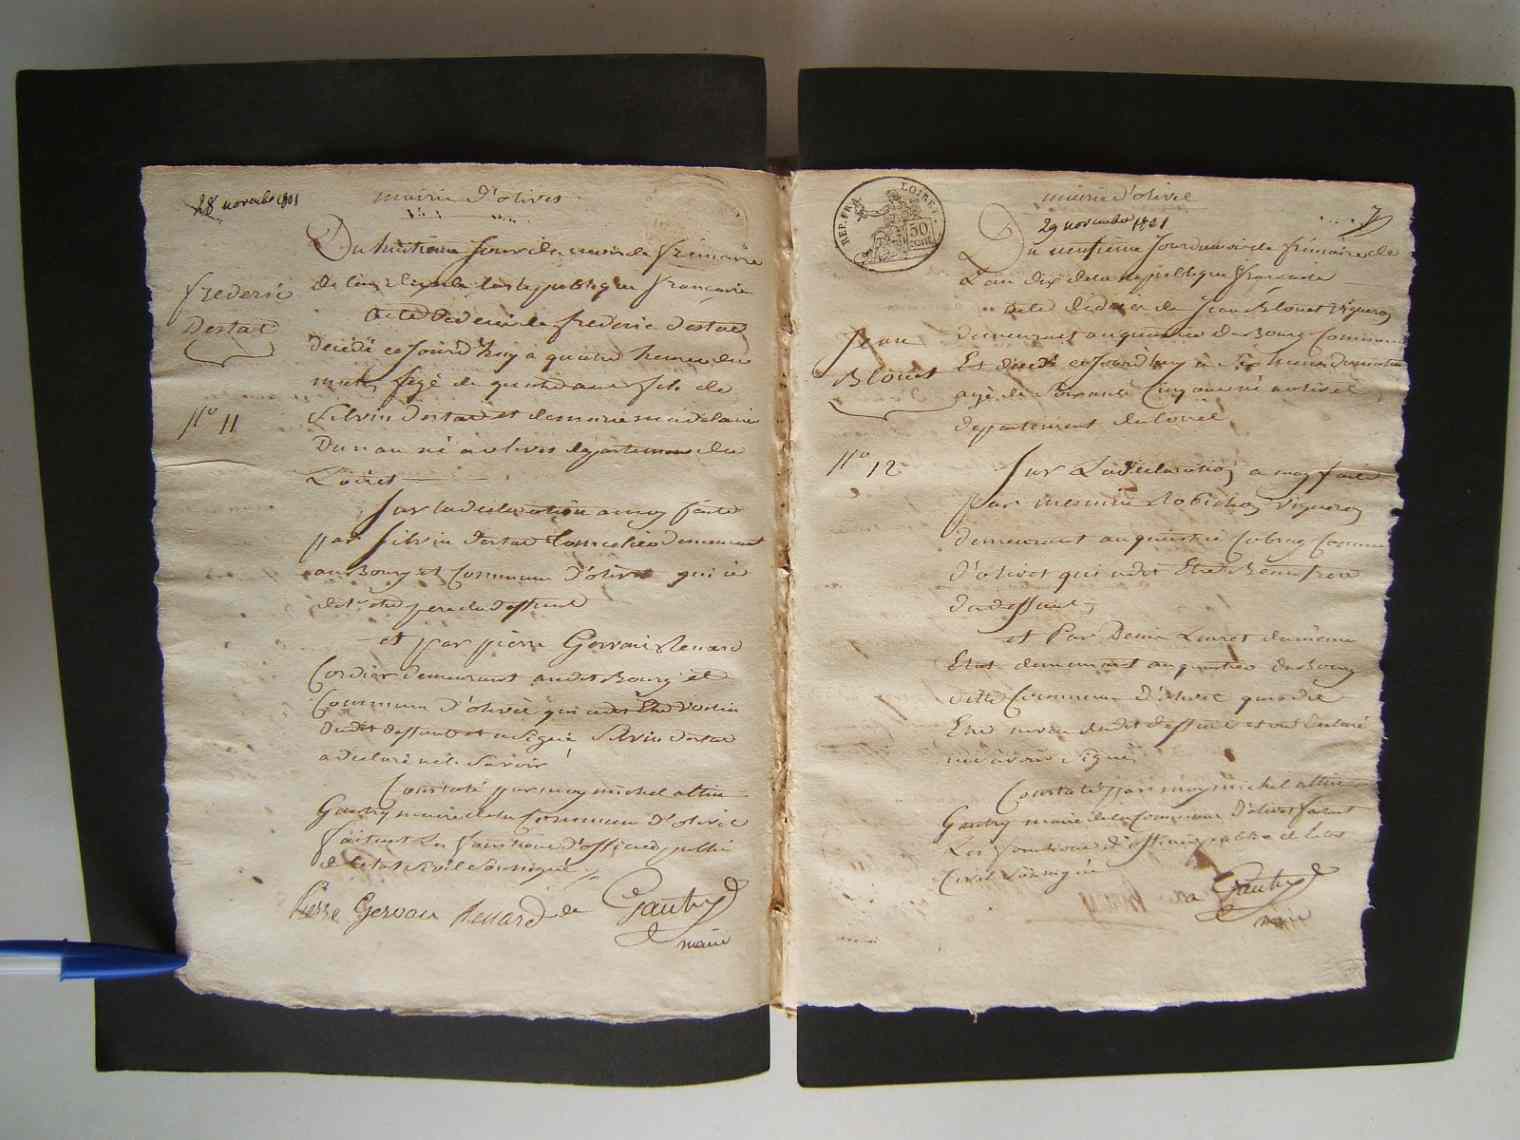 28 novembre 1801
mairie d'olivet
Du huitieme Jour du mois de frimaire
De l'an dix de la Republique francaise
frederic
Destat
Acte de deces de frederic destat
Decédé ce Jourd'huy a quatre heures du
matin agé de quatre ans fils de
N° 11
Silvin destat et de marie magdelaine
né a olivet departement du
Loiret
Sur la declaration a moy faite
par Silvin destat demeurant
au Bourg et Commune D'olivet qui a
dit etre pere du deffunt
et par pierre Gervais Renard
Cordier demeurant audit Bourg et
Commune D'olivet qui a dit Etre Voisin
Dudit deffunt et a signé Silvin destat
a declaré ne le Savoir
Constaté par moy michel
Gautry maire de la Commune D'olivet
faisant Les fonctions D'officier public
de l'etat Civil Soussigné
Pierre Gervais Renard Gautry
maire
REP. FRA. LOIRET
50 cent
mairie d'olivet
29 novembre 1801
7
Du neufieme Jour du mois de frimaire de
L'an dix de la republique francaise
acte de décès de Jean Blouet Vigneron
Jean
Blouet
demeurant au quartier du Bourg Commune
Et décédé ce Jourd'huy a heures du matin
agé de Soixante Cinq ans né a olivet
departement du Loiret
N° 12
Sur La declaration a moy faite
par Robichon Vigneron
demeurant au quartier Commune
d'olivet qui a dit Etre Beau frere
du deffunt
et Par Denis Louret du même
Etat demeurant au quartier du Bourg
ditte Commune D'olivet qui a dit
Etre neveu dudit deffunt et ont declaré
ne savoir signé
Constaté par moy michel
Gautry maire de la Commune D'olivet faisant
Les fonctions d'officier public de L'etat
Civil Soussigné
Gautry
maire